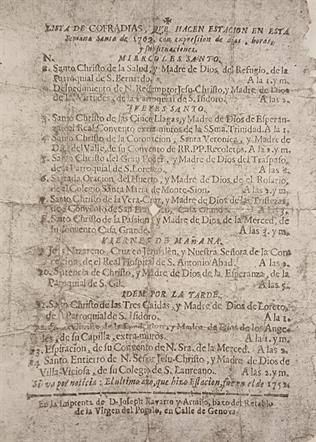 LISTA DE COFRADIAS, QUE HACEN ESTACION EN ESTA
Semana Santa de con expresion de dias, horas,
y situaciones.
N. MIERCOLES SANTO.
Santo Christo de la Salud, y Madre de Dios del Refugio, de la
Parroquial de S. Bernardo. A la 1. y m.
Desprecimiento de N. Redemptor Jesu-Christo, y Madre de Dios
de las Virtudes, de la Parroquial de S. Isidoro. A las 2.
JUEVES SANTO.
3. Santo Christo de las Cinco Llagas, y Madre de Dios de Esperan-
del Real Convento extra-muros de la SSma. Trinidad. A la 1.
Santo Christo de la Coronacion, Santa Veronica, y Madre de
Dios del Valle, de su Convento de RR.PP. Recoletos. A la 1. y m.
Santo Christo del Gran Poder, y Madre de Dios del Traspaso,
de la Parroquial de S. Lorenzo. A las
Sagrada Oracion del Huerto, y Madre de Dios de el Rosario,
de el Colegio Santa Maria de Monte-Sion. A las 2. y m.
Santo Christo de la Vera-Cruz, y Madre de Dios de las Tristezas,
de Convento de San Casa Grande. A las
8. Santo Christo de la Passion, y Madre de Dios de la Merced, de
su Convento Casa Grande. A las 3. y m.
VIERNES DE MAÑANA.
9 Jesus Nazareno, Cruz en Jerusalèn, y Nuestra Señora de la Con-
cepcion, de el Real Hospital de S. Antonio Abad. A las
10. Sentencia de Christo, y Madre de Dios de la Esperanza, de la
Parroquial de S. Gil. A las 5.
IDEM POR LA TARDE.
Santo Christo de las Tres Caidas, y Madre de Dios de Loreto,
de Parroquial de S. Isidoro. A la 1.
Madre de Dios de los Ange-
les, de su Capilla, extra-muros. A la 1. y m.
Espiracion, de su Convento de N. Sra. de la Merced. A las 2.
Santo Entierro de N. Señor Jesu-Christo, y Madre de Dios de
Villa-Viciosa, de su Colegio de S. Laureano. A las 2. y m.
Si và por noticia: El ultimo año, que hizo Estacion, fue en el de
En la Imprenta de D. Joseph Navarro y Armijo, baxo del Retablo
de la Virgen del Populo, en Calle de Genova.